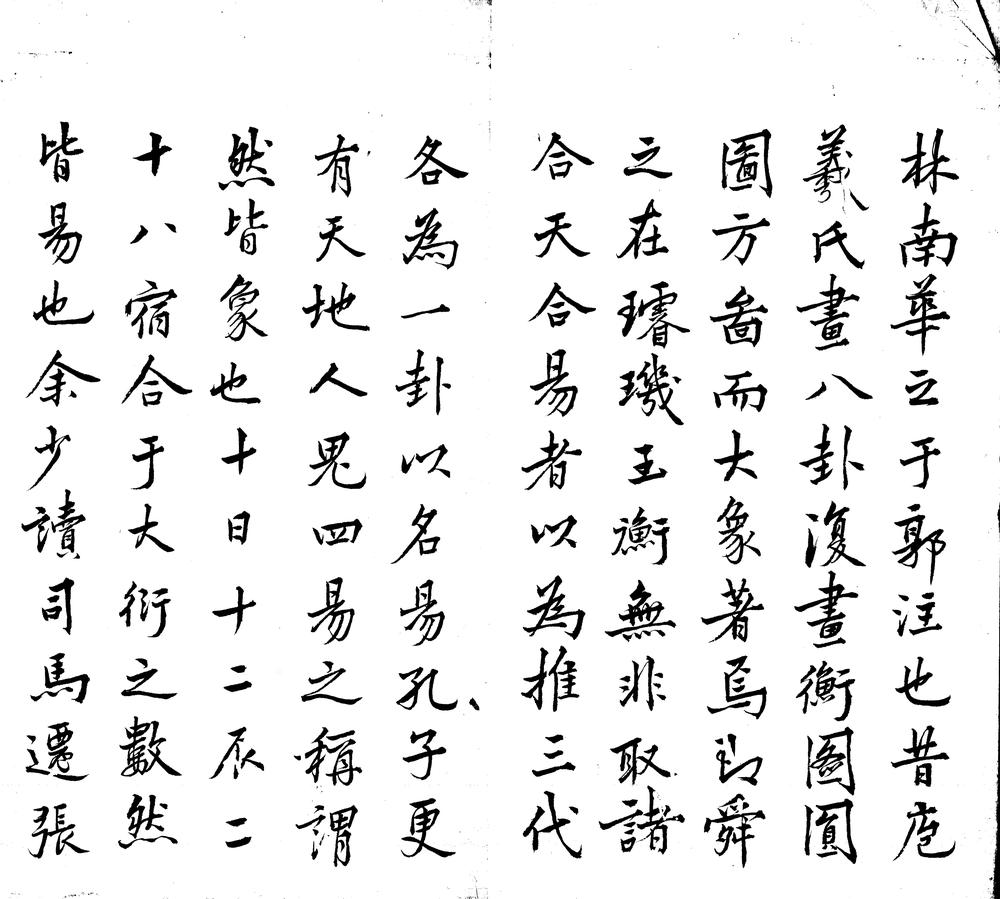 林南華之于郭注也昔庖
羲氏畫八卦復畫衡圖圓
圖方啚而大象著焉即舜
之在璿璣玉衡無非取諸
合天合易者以為推三代
各為一卦以名易孔子更
有天地人鬼四易之稱謂
然皆象也十日十二辰二
十八宿合于大衍之數然
皆易也余少讀司馬遷張